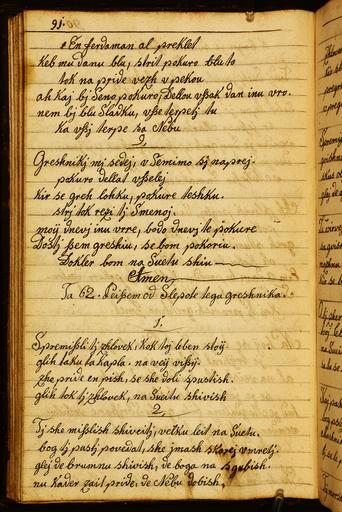 91.
En ferdaman al preklet
Keb mu danu blu, strit pokuro blu to
tok na pride vezh v pehou
ah kaj bj seno pokuro, dellou vssak dan inu vro.
nem bj blu sladku, vsse terpetj tu
ka vssj terpe sa Nebu
9
Greshnikj mj sedej, v semimo sj naprej.
pokuro dellat vsselej
kir se greh lohku, pokure teshku.
strj tok rezi tj Smenoj.
moij dnevj inu vrre, bodo dnevj te pokure
Dostj ssem greshiu, se bom pokoriu.
Dokler bom na Suetu shiu
Amen
Ta 62. Peissem od Slepote tega greshnika.
1.
Spremissli tj zhlovek, kok toj leben stoij
glih taku ta kapla. na veij vissij.
zhe pride en pish, se she doli spustish.
glih tok tj zhlovek, na Sueitu shivish
2
Tj ske misslish shiveitj, velku leit na Suetu.
bog tj pustj povedat, ske jmash skorej vmretj.
glej de brumnu shivish, de boga na sgubish.
nu kader zait pride, de Nebu dobish.